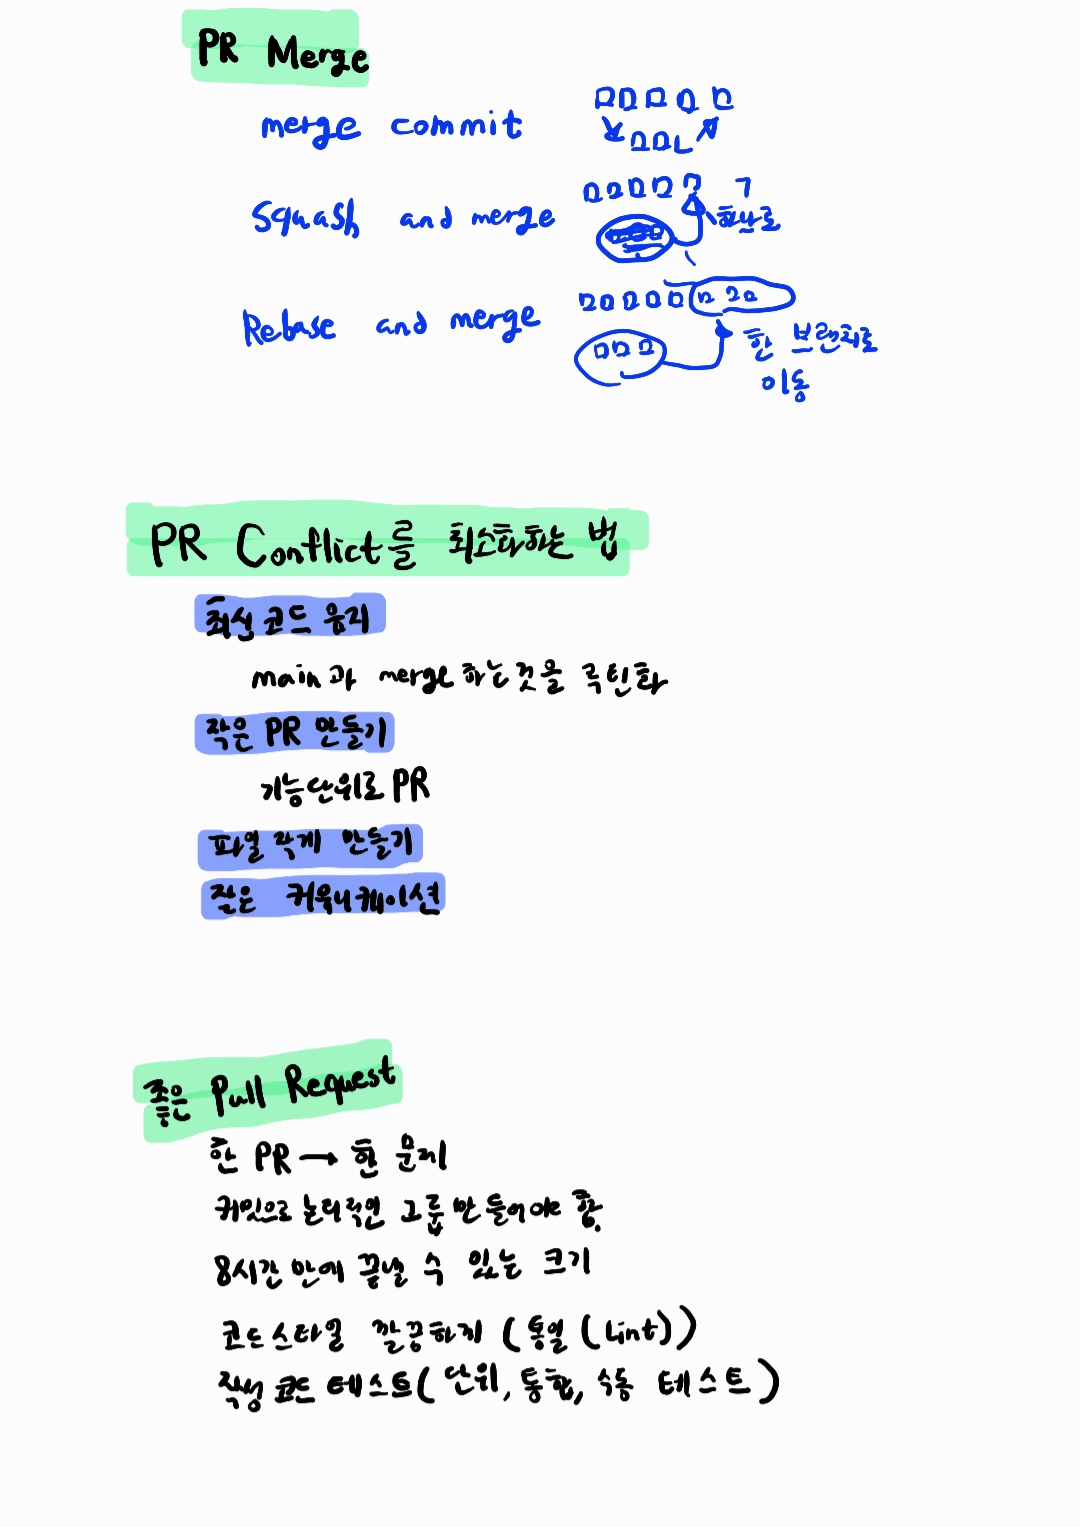 PR Merge
merge commit
Squash and merge
하나로
Rebase and merge
한 브랜치로
이동
PR Conflict를 최소화하는 법
최신 코드 유지
main과 merge 하는것을 루틴화
작은 PR 만들기
기능단위로 PR
파일 작게 만들기
잦은 커뮤니케이션
좋은 Pull Request
한 PR → 한 문제
커밋으로 논리적인 그룹 만들어야 함.
8시간 안에 끝낼 수 있는 크기
코드 스타일 깔끔하게 (통일 (Lint))
작성 코드 테스트 (단위, 통합, 수동 테스트)